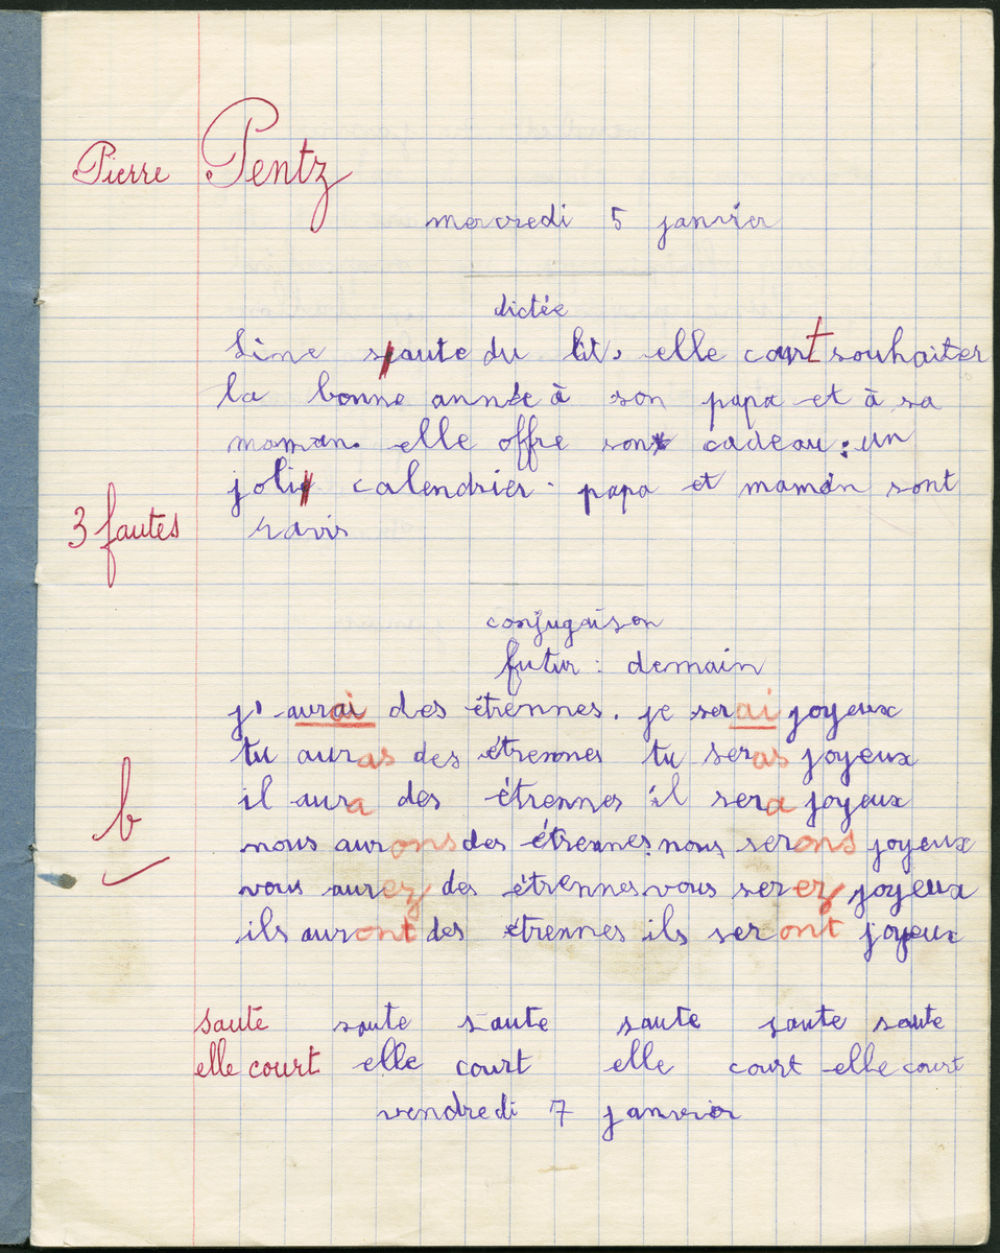 Pierre Pentz
mercredi 5 janvier
dictée
Line saute du lit, elle court souhaiter
la bonne année à son papa et à sa
maman. elle offre son cadeau : un
joli calendrier. papa et maman sont
3 fautes ravis
conjugaison
futur : demain
j'aurai des étrennes. je serai joyeux
tu auras des étrennes tu seras joyeux
il aura des étrennes il sera joyeux
b nous aurons des étrennes. nous serons joyeux
vous aurez des étrennes vous serez joyeux
ils auront des étrennes ils seront joyeux
saute saute saute saute saute saute
elle court elle court elle court elle court
vendredi 7 janvier